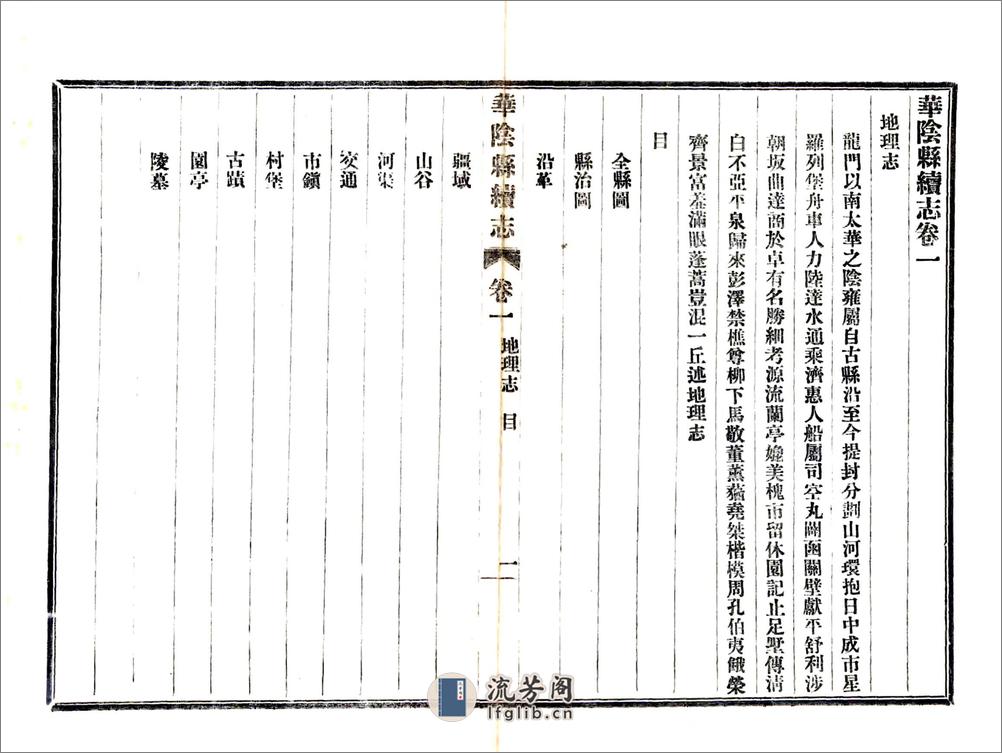 華陰縣續志卷一
地理志
龍門以南太華之陰雍屬自古縣沿至今提封分劃山河環抱日中成市星
羅列堡舟車人力陸達水通乘濟惠人船屬司空丸關函關壁獻平舒利涉
朝坂曲達商於卓有名勝細考源流蘭亭媲美槐市留休園記止足墅傳清
白不亞平泉歸來彭澤禁樵尊柳下馬敬董薰蕕堯桀楷模周孔伯夷餓榮
齊景富羞滿眼蓬蒿豈混一丘述地理志
目
全縣圖
縣治圖
沿革
華陰縣續志 卷一 地理志 目 一
疆域
山谷
河渠
交通
市鎭
村堡
古蹟
園亭
陵墓
流芳阁
lfglib.cn